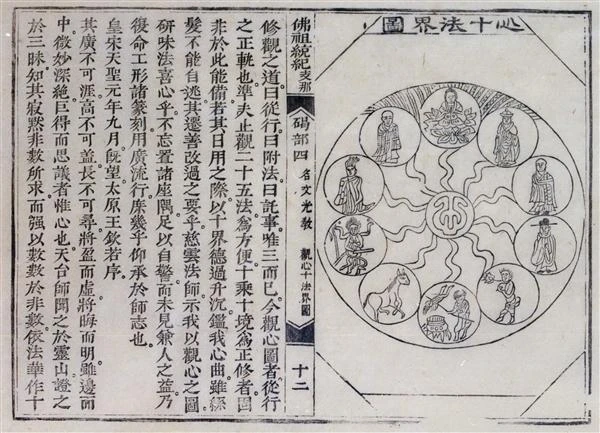 心十法界圖
心
佛祖統紀 支那
碣部四 名文光教 觀心十法界圖
十二
修觀之道曰從行曰附法曰託事唯三而已今觀心圖者從行
之正軌也準夫止觀二十五法為方便十乘十境為正修者固
非於此能備若其日用之際以十界德過升沉鑑我心曲雖絲
髮不能自逃其遷善改過之要乎慈雲法師示我以觀心之圖
研味法喜心乎不忘置諸座隅足以自警而未見兼人之益乃
復命工形諸篆刻用廣流行庶幾乎仰承於師志也
皇宋天聖元年九月既望太原王欽若序
其廣不可涯高不可蓋長不可尋將盈而虛將晦而明雖邊而
中微妙深絕叵得而思議者惟心也天台師聞之於靈山證之
於三昧知其寂默非數所求而强以數數於非數依法華作十